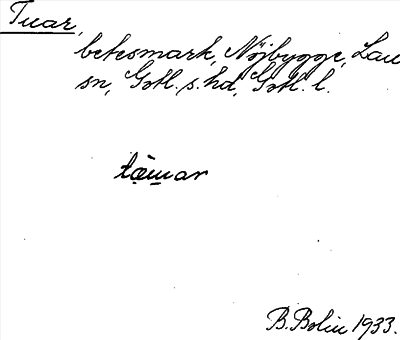 Tuar,
betesmark, Nöjbygge, Lau
sn, Gotl. s. hd, Gotl. l.
B. Bolin 1933.